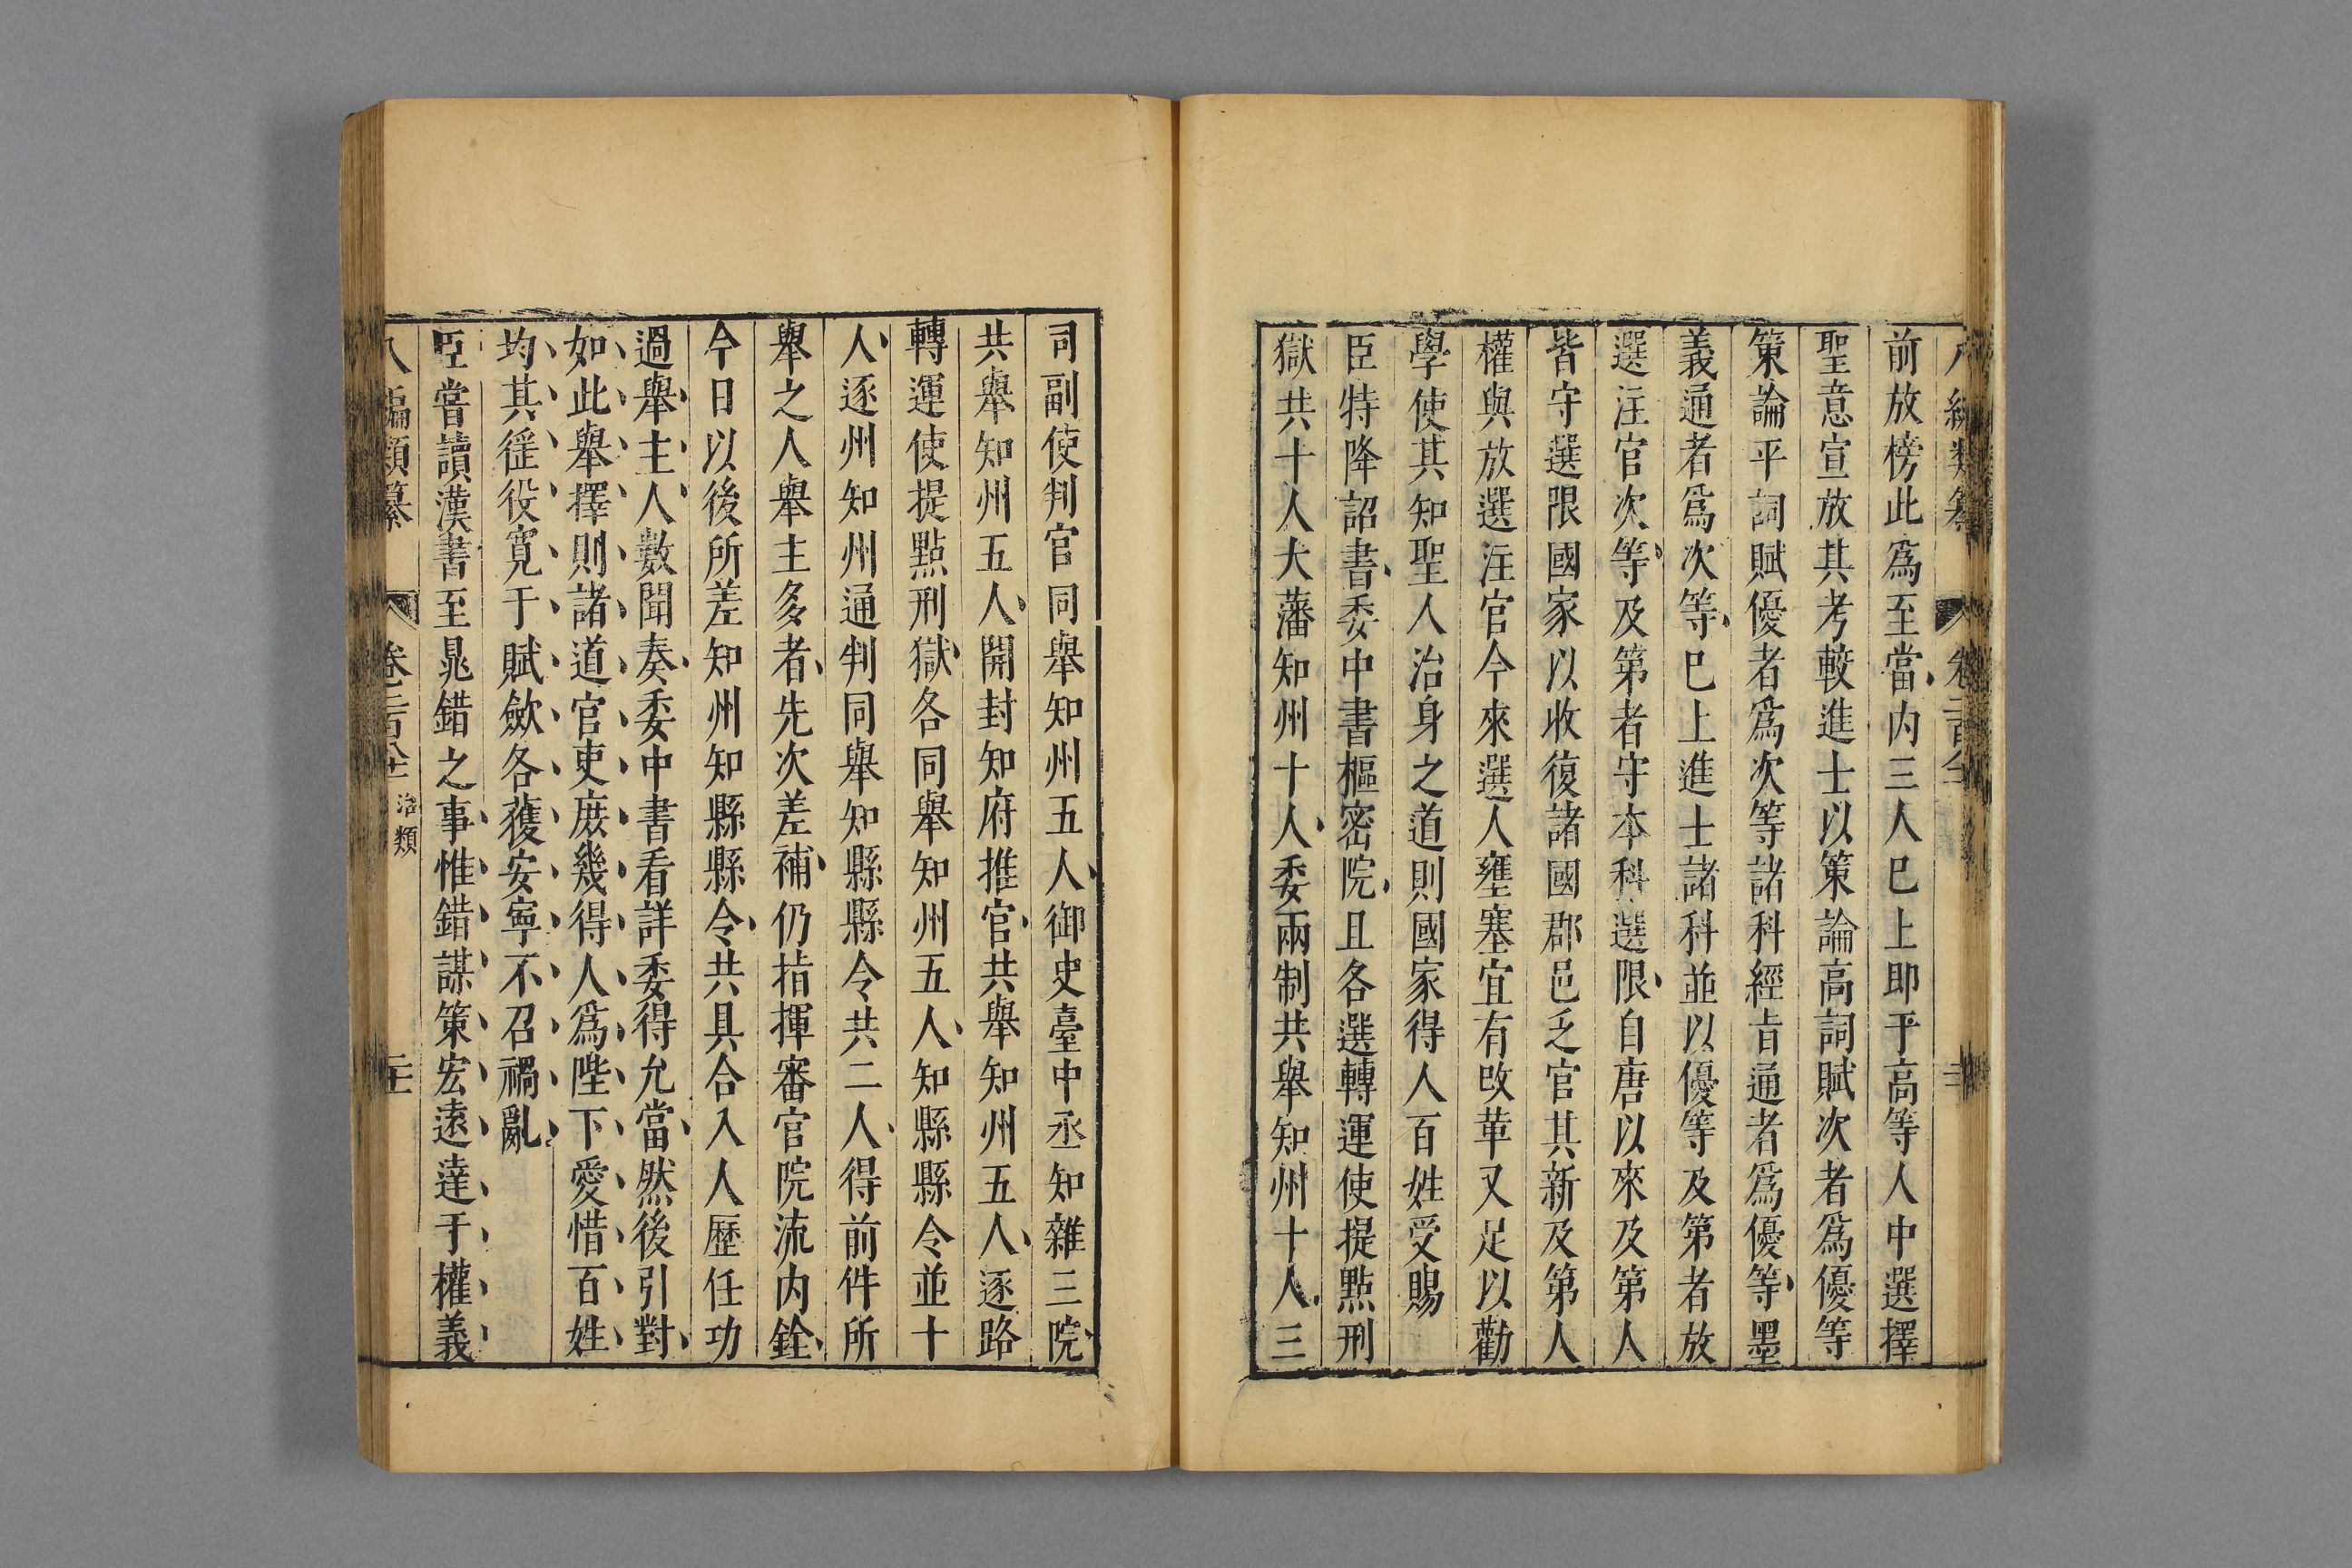 前放榜此爲至當内三人巳上即于高等人中選擇
聖意宣放其考較進士以策論高詞賦次者爲優等
策論平詞賦優者爲次等諸科經旨通者爲優等墨
義通者爲次等巳上進士諸科並以優等及第者放
選注官次等及第者守本科選限自唐以來及第人
皆守選限國家以收復諸國郡邑乏官其新及第人
權與放選注官今來選人壅塞宜有改革又足以勸
學使其知聖人治身之道則國家得人百姓受賜
臣特降詔書委中書樞密院且各選轉運使提點刑
獄共十人大藩知州十人委兩制共舉知州十人三
司副使判官同舉知州五人御史臺中丞知雜三院
共舉知州五人開封知府推官共舉知州五人逐路
轉運使提點刑獄各同舉知州五人知縣縣令並十
人逐州知州通判同舉知縣縣令共二人得前件所
舉之人舉主多者先次差補仍指揮審官院流内銓
今日以後所差知州知縣縣令共具合入人歷任功
過舉主人數聞奏委中書看詳委得允當然後引對
如此舉擇則諸道官吏庶幾得人爲陛下愛惜百姓
均其徭役寛于賦斂各獲安寧不召禍亂
臣嘗讀漢書至晁錯之事惟錯謀策宏遠達于權義
八編類纂 治類